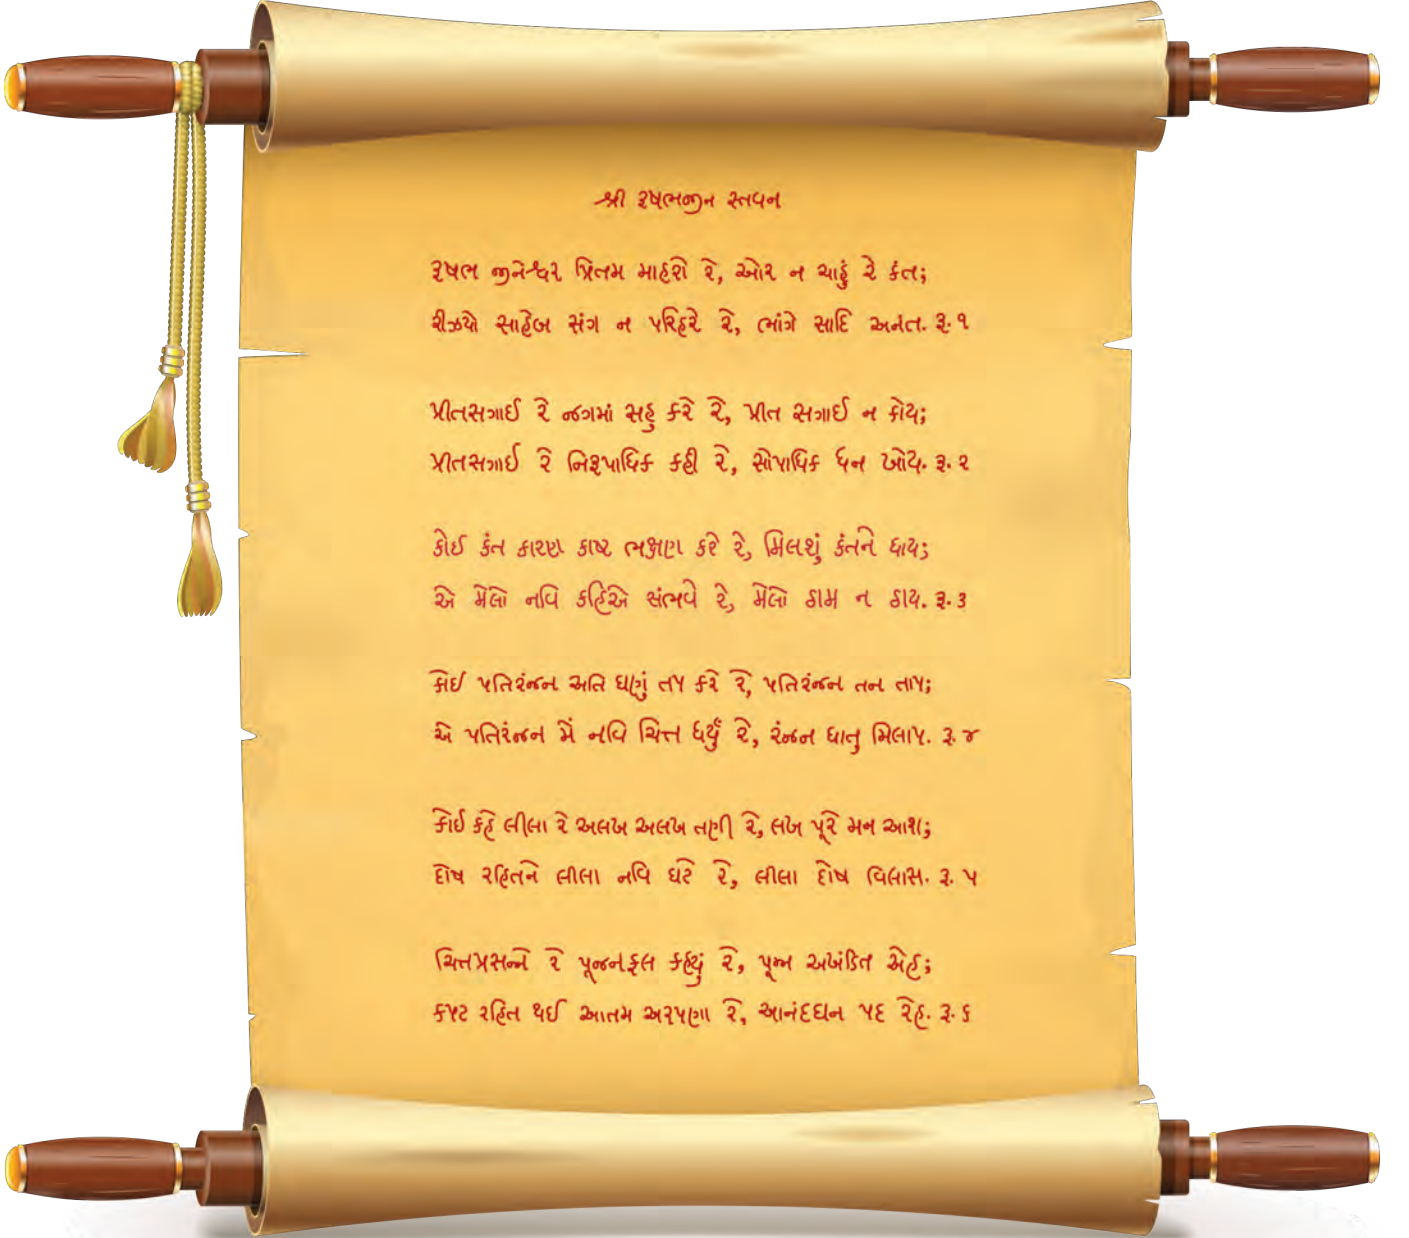 શ્રી રૂષભજીન સ્તવન
રૂષભ જીનેશ્વર પ્રિતમ માહરો રે, ઓર ન ચાહું રે કંત;
રીઝયો સાહેબ સંગ ન પરિહરે રે, ભાંગે સાદિ અનંત. રૂ. ૧
પ્રીતસગાઈ રે જગમાં સહુ કરે રે, પ્રીત સગાઈ ન કોય;
પ્રીતસગાઈ રે નિરૂપાધિક કહી રે, સોપાધિક ધન ખોય. રૂ. ૨
કોઈ કંત કારણ કાષ્ટ ભક્ષણ કરે રે, મિલશું કંતને ધાય;
એ મેલો નવિ કહિએ સંભવે રે, મેલો ઠામ ન ઠાય. રૂ. ૩
કોઈ પતિરંજન અતિ ઘણું તપ કરે રે, પતિરંજન તન તાપ;
એ પતિરંજન મેં નવિ ચિત્ત ધર્યું રે, રંજન ધાતુ મિલાપ. રૂ. ૪
કોઈ કહે લીલા રે અલખ અલખ તણી રે, લખ પૂરે મન આશ;
દોષ રહિતને લીલા નવિ ઘટે રે, લીલા દોષ વિલાસ. રૂ. ૫
ચિત્તપ્રસન્ને રે પૂજનફલ કહ્યું રે, પૂજા અખંડિત એહ;
કપટ રહિત થઈ આતમ અરપણા રે, આનંદઘન પદ રેહ. રૂ. ૬